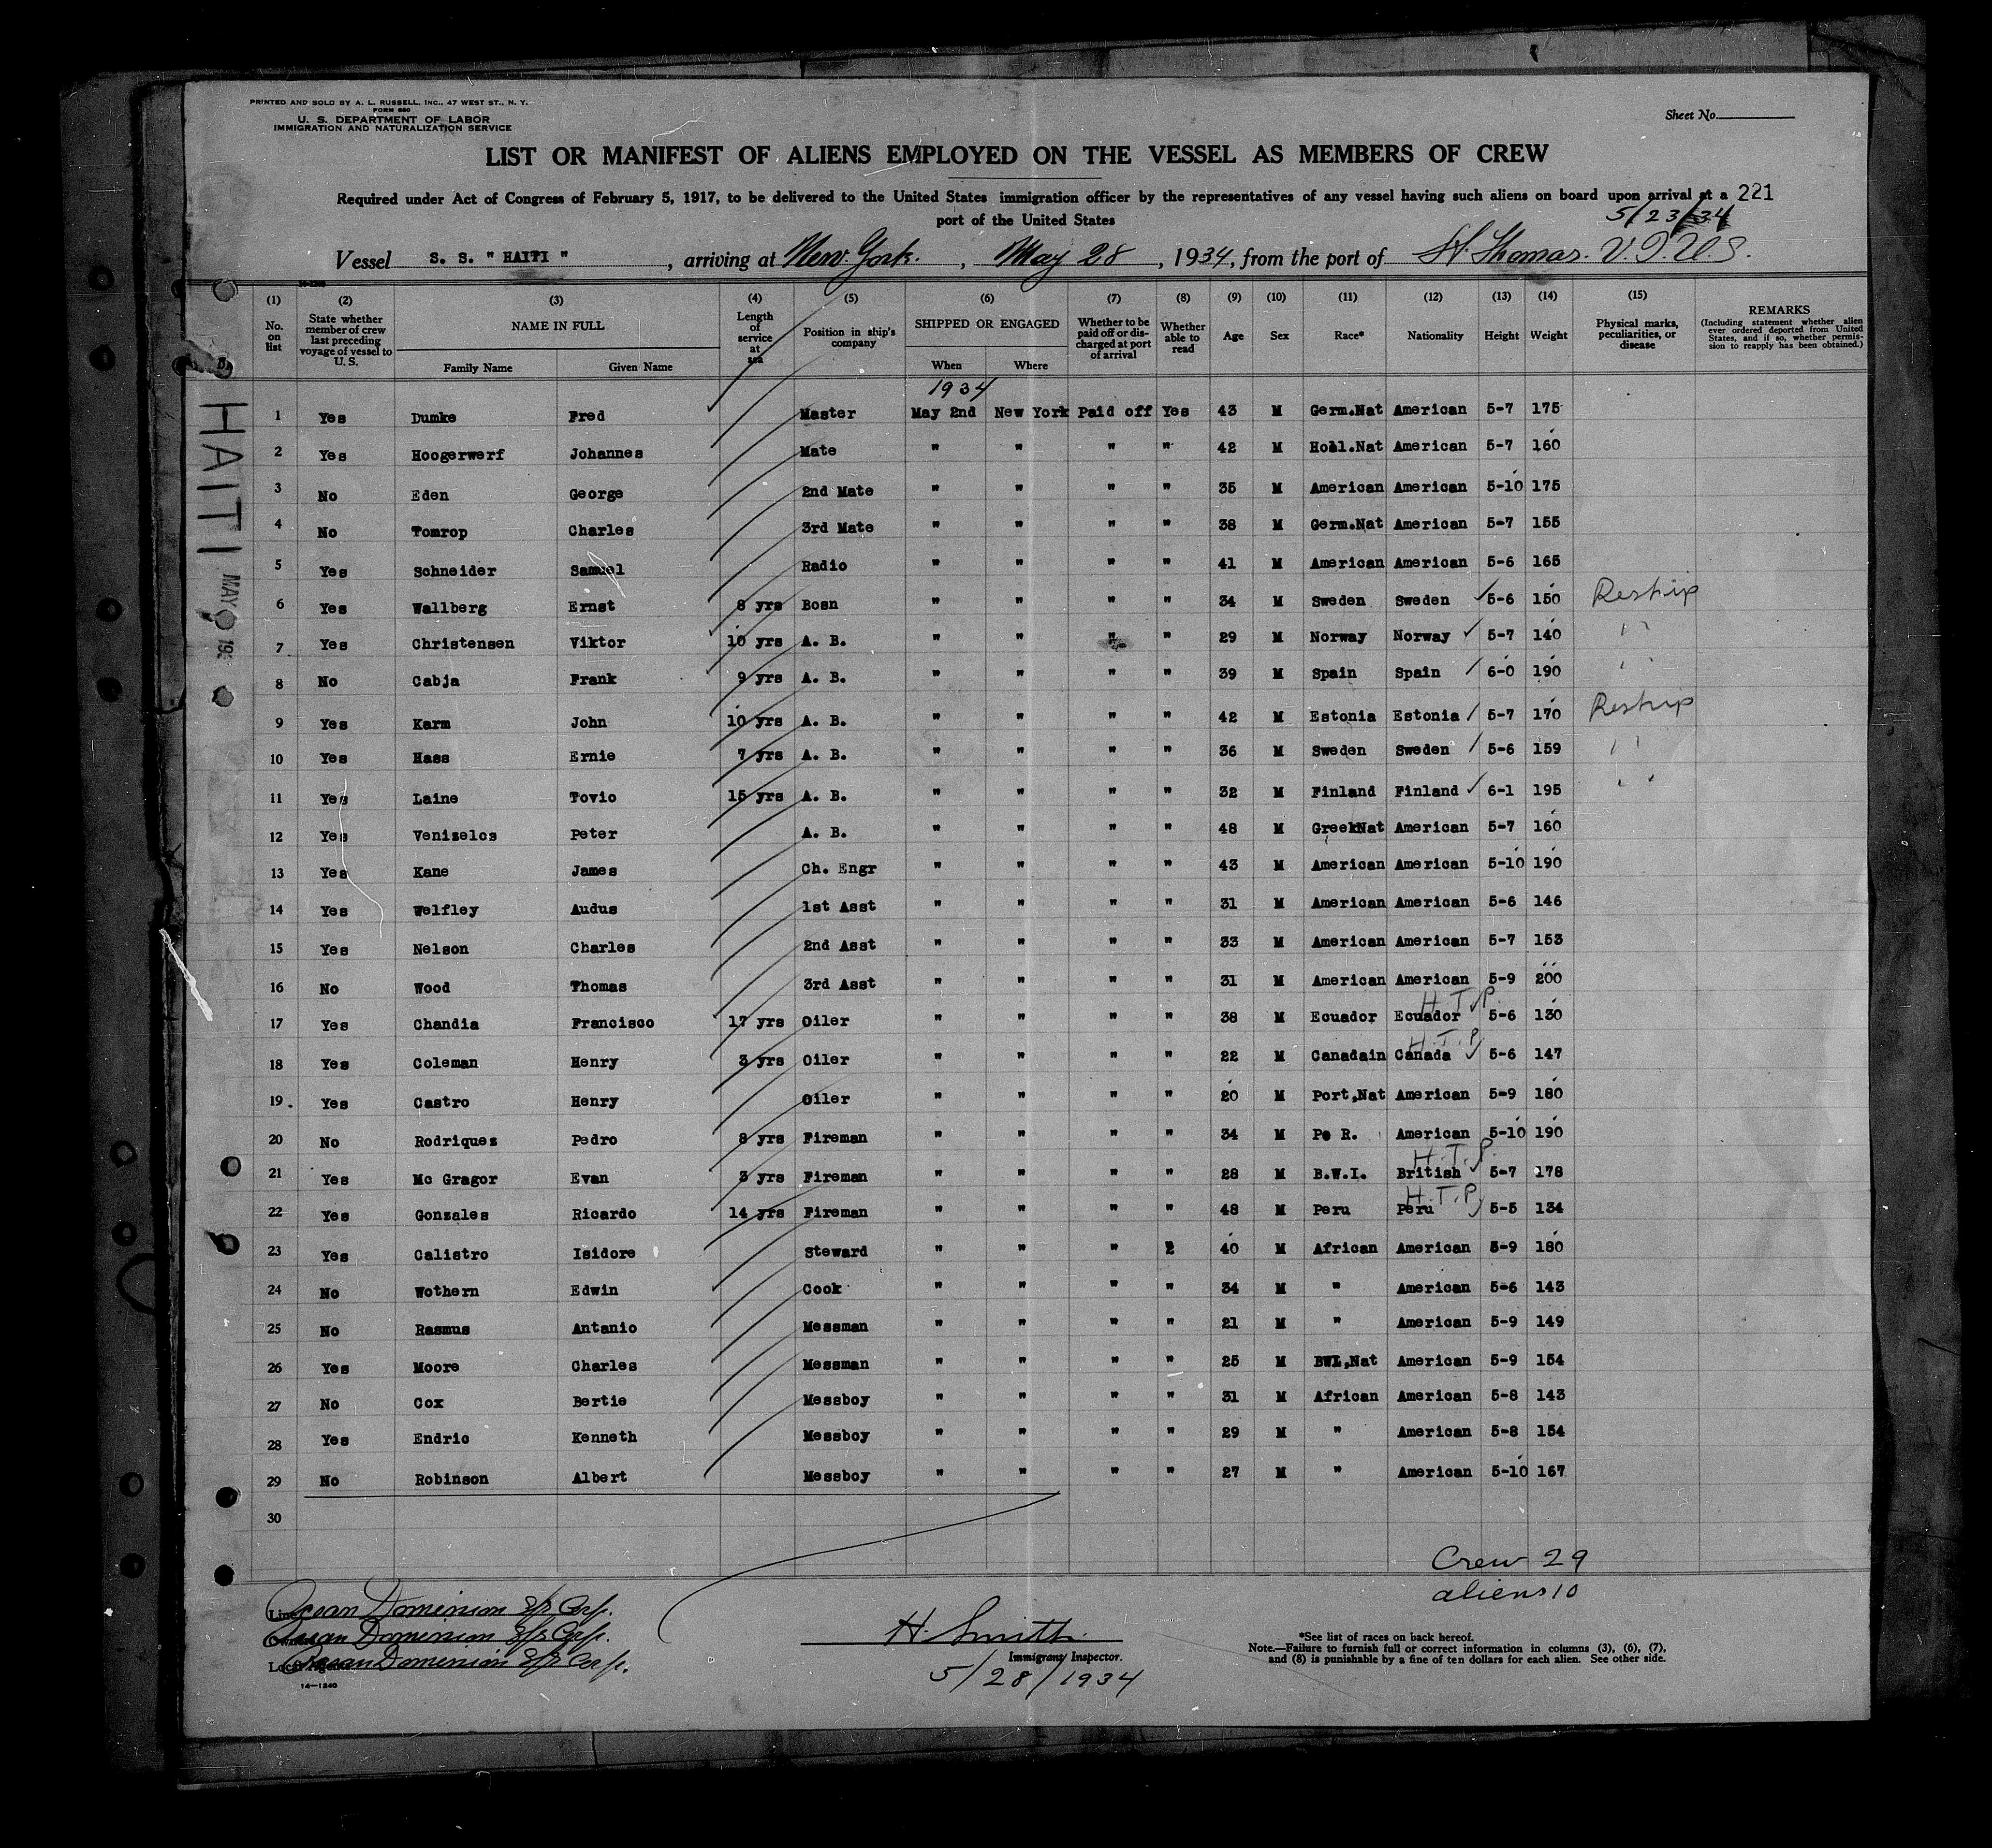 PRINTED AND SOLD BY A. L. RUSSELL, INC., 47 WEST ST., N. Y.
FORM 680
U. S. DEPARTMENT OF LABOR
IMMIGRATION AND NATURALIZATION SERVICE
Sheet No.
LIST OR MANIFEST OF ALIENS EMPLOYED ON THE VESSEL AS MEMBERS OF CREW
Required under Act of Congress of February 5, 1917, to be delivered to the United States immigration officer by the representatives of any vessel having such aliens on board upon arrival at a 221
port of the United States
5/23/34
Vessel S. S. " HAITI " , arriving at New York. , May 28 , 1934, from the port of St. Thomas. V.I.U.S.
(1) (2) (3) (4) (5) (6) (7) (8) (9) (10) (11) (12) (13) (14) (15)
No. on list State whether member of crew last preceding voyage of vessel to U. S. NAME IN FULL Family Name Given Name Length of service at sea Position in ship's company SHIPPED OR ENGAGED When Where Whether to be paid off or discharged at port of arrival Whether able to read Age Sex Race* Nationality Height Weight Physical marks, peculiarities, or disease REMARKS (Including statement whether alien ever ordered deported from United States, and if so, whether permission to reapply has been obtained.)
1934
1 Yes Dumke Fred Master May 2nd New York Paid off Yes 43 M Germ.Nat American 5-7 175
2 Yes Hoogerwerf Johannes Mate " " " " 42 M Holl.Nat American 5-7 160
3 No Eden George 2nd Mate " " " " 35 M American American 5-10 175
4 No Tomrop Charles 3rd Mate " " " " 38 M Germ.Nat American 5-7 155
5 Yes Schneider Samuel Radio " " " " 41 M American American 5-6 165
6 Yes Wallberg Ernst 8 yrs Bosn " " " " 34 M Sweden Sweden ✓ 5-6 150 Reship
7 Yes Christensen Viktor 10 yrs A. B. " " " " 29 M Norway Norway ✓ 5-7 140 "
8 No Cabja Frank 9 yrs A. B. " " " " 39 M Spain Spain ✓ 6-0 190 "
9 Yes Karm John 10 yrs A. B. " " " " 42 M Estonia Estonia ✓ 5-7 170 Reship
10 Yes Hass Ernie 7 yrs A. B. " " " " 36 M Sweden Sweden ✓ 5-6 159 "
11 Yes Laine Tovio 15 yrs A. B. " " " " 32 M Finland Finland ✓ 6-1 195 "
12 Yes Venizelos Peter A. B. " " " " 48 M GreekNat American 5-7 160
13 Yes Kane James Ch. Engr " " " " 43 M American American 5-10 190
14 Yes Welfley Audus 1st Asst " " " " 31 M American American 5-6 146
15 Yes Nelson Charles 2nd Asst " " " " 33 M American American 5-7 153
16 No Wood Thomas 3rd Asst " " " " 31 M American American 5-9 200
17 Yes Chandia Francisco 17 yrs Oiler " " " " 38 M Ecuador Ecuador H.T.P. ✓ 5-6 130
18 Yes Coleman Henry 3 yrs Oiler " " " " 22 M Canadain Canada H.T.P. ✓ 5-6 147
19. Yes Castro Henry Oiler " " " " 20 M Port,Nat American 5-9 180
20 No Rodriques Pedro 8 yrs Fireman " " " " 34 M Po R. American 5-10 190
21 Yes Mc Gragor Evan 3 yrs Fireman " " " " 28 M B.W.I. British H.T.P. ✓ 5-7 178
22 Yes Gonzales Ricardo 14 yrs Fireman " " " " 48 M Peru Peru H.T.P. ✓ 5-5 134
23 Yes Calistro Isidore Steward " " " 2 40 M African American 5-9 180
24 No Wothern Edwin Cook " " " " 34 M " American 5-6 143
25 No Rasmus Antanio Messman " " " " 21 M " American 5-9 149
26 Yes Moore Charles Messman " " " " 25 M BWI,Nat American 5-9 154
27 No Cox Bertie Messboy " " " " 31 M African American 5-8 143
28 Yes Endric Kenneth Messboy " " " " 29 M " American 5-8 154
29 No Robinson Albert Messboy " " " " 27 M " American 5-10 167
30
HAITI
MAY 193
Crew 29
aliens 10
Line Ocean Dominion S/S Corp.
Owners Ocean Dominion S/S Corp.
Local Ocean Dominion S/S Corp.
14—1240
H. Smith
Immigrant Inspector.
5/28/1934
*See list of races on back hereof.
Note.—Failure to furnish full or correct information in columns (3), (6), (7),
and (8) is punishable by a fine of ten dollars for each alien. See other side.